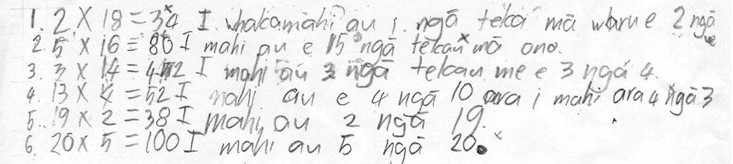 1. 2 X 18 = 34 I whakamahi au i ngā tekau mā waru e 2 ngā
2. 5 X 16 = 80 I mahi au e 5 ngā tekau mā ono.
3. 3 X 14 = 42 I mahi au 3 ngā tekau me e 3 ngā 4.
4. 13 X 4 = 52 I mahi au e 4 ngā 10 ara i mahi ara 4 ngā 3
5. 19 X 2 = 38 I mahi au 2 ngā 19.
6. 20 X 5 = 100 I mahi au 5 ngā 20.